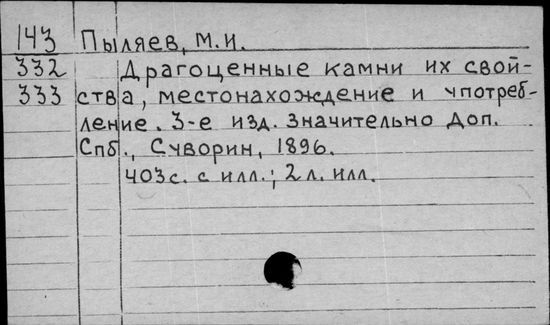 143 Пыляев, М.И.
332 Драгоценные камни их свой-
333 ства, местонахождение и употреб-
ление. 3-е изд. значительно доп.
Спб., Суворин, 1896.
403с. с илл.; 2л. илл.